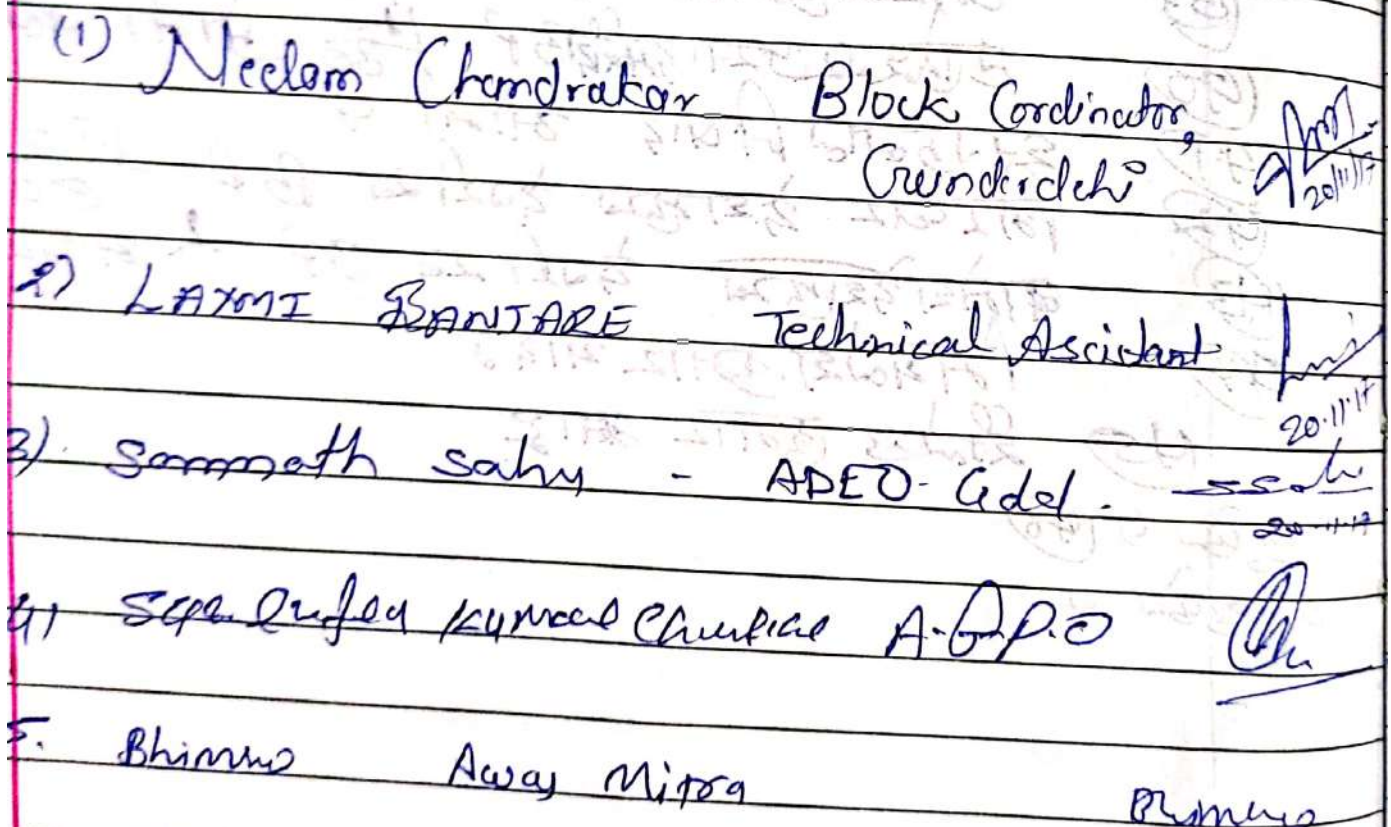 (1) Neelam Chandrakar Block Cordinator,
Gunderdehi
20/11/17
2) LAXMI BANJARE Technical Assistant
20.11.17
3). Somnath sahu - ADEO- Gdd. ssahu
20-11-17
4) A.G.P.O
5. Bhimno Awas Mitra Bhimno